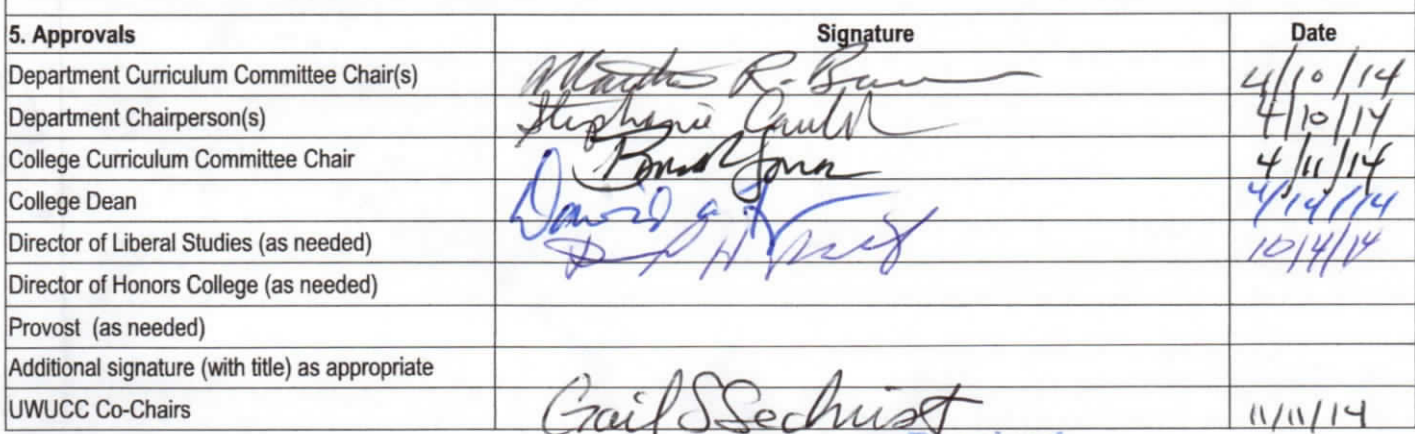 5. Approvals Signature Date
Department Curriculum Committee Chair(s) R. 4/10/14
Department Chairperson(s) Stephanie 4/10/14
College Curriculum Committee Chair 4/11/14
College Dean David a 4/14/14
Director of Liberal Studies (as needed) H 10/4/14
Director of Honors College (as needed)
Provost (as needed)
Additional signature (with title) as appropriate
UWUCC Co-Chairs Gail S Sechrist 11/11/14